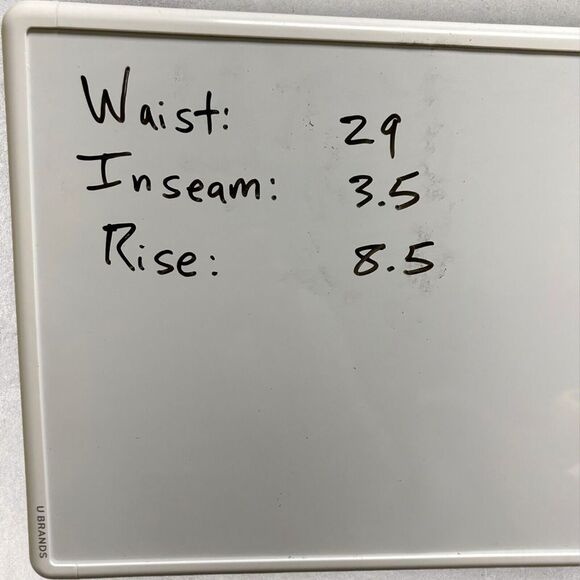 Waist: 29
Inseam: 3.5
Rise: 8.5
U BRANDS